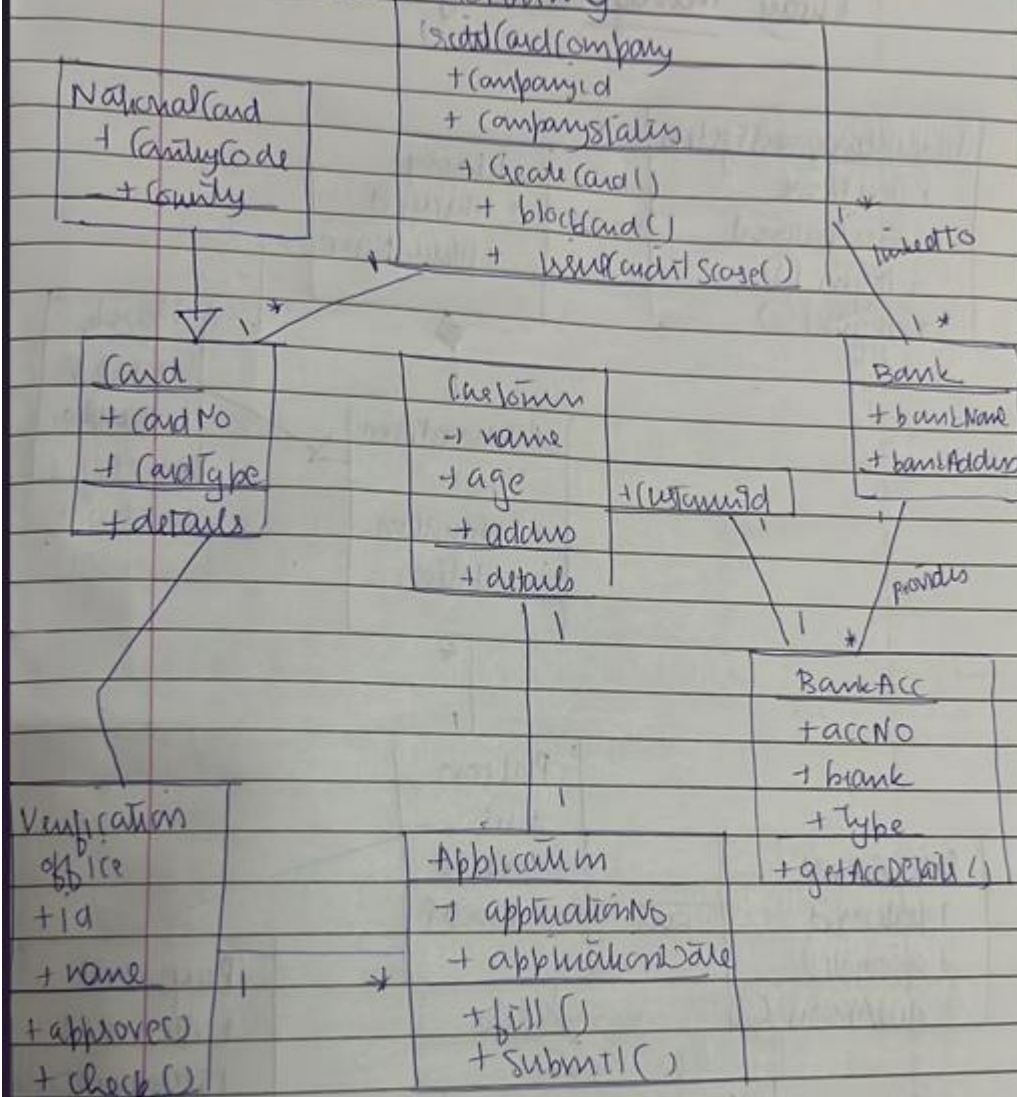 CreditCardCompany
+ Companyid
+ CompanyStatus
+ CreateCard()
+ blockCard()
+
NationalCard
+ CountryCode
+ Country
1
*
1 *
linkedTo
1 *
Card
+ CardNo
+ CardType
+ details
Customer
+ name
+ age
+ address
+ details
+ Customerid
Bank
+ bankName
+ bankAddress
1
1
provides
1
1
*
BankAcc
+ accNo
+ brank
+ Type
+ getAccDetails()
1
1
Verification
office
+ id
+ name
+ approve()
+ check()
1
*
Application
+ applicationNo
+ applicationDate
+ fill()
+ Submit()